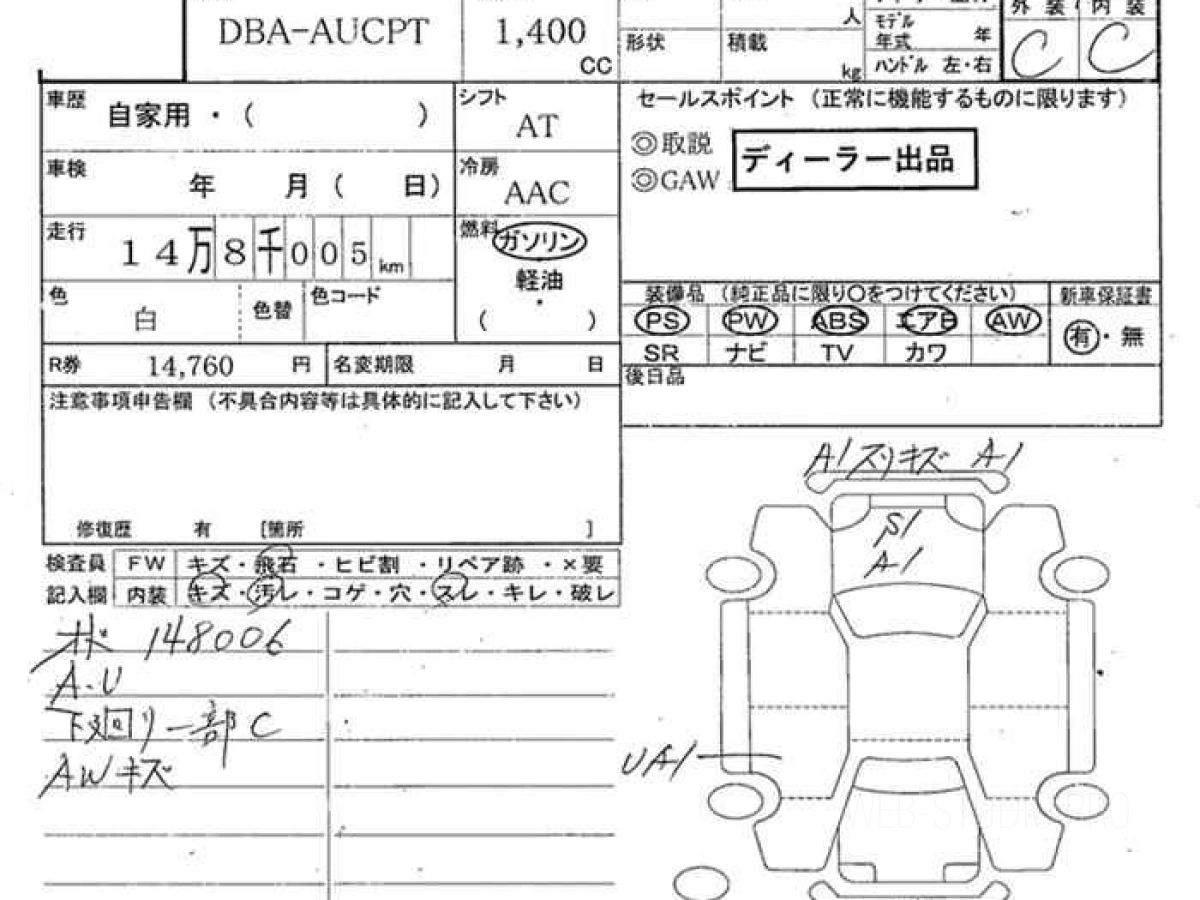 DBA-AUCPT
1,400
CC
人
形状
積載
kg
モデル
年式
年
ハンドル 左・右
外装
内装
C
C
車歴
自家用 ・ ( )
シフト
AT
車検
年 月 ( 日)
冷房
AAC
走行
14万8千005km
燃料
ガソリン
軽油
・
( )
色
白
色替
色コード
R券
14,760
円
名変期限
月
日
セールスポイント (正常に機能するものに限ります)
◎取説
◎GAW
ディーラー出品
装備品 (純正品に限り○をつけてください)
新車保証書
PS PW ABS エアB AW
有・無
SR ナビ TV カワ
後日品
注意事項申告欄 (不具合内容等は具体的に記入して下さい)
修復歴 有 [箇所 ]
検査員
記入欄
FW キズ・飛石 ・ヒビ割 ・リペア跡 ・×要
内装 キズ・汚レ・コゲ・穴・スレ・キレ・破レ
148006
A・U
下廻り一部C
AWキズ
A1 スリキズ A1
S1
A1
UA1